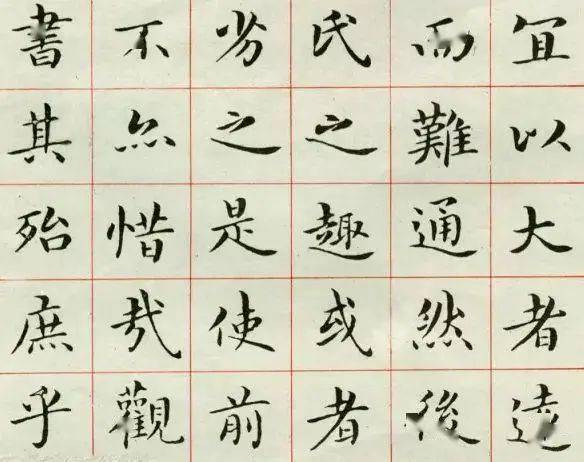 冝以大者
而難通然後
氏之趣或者
劣之是使前
不亦惜哉觀
書其殆庶乎